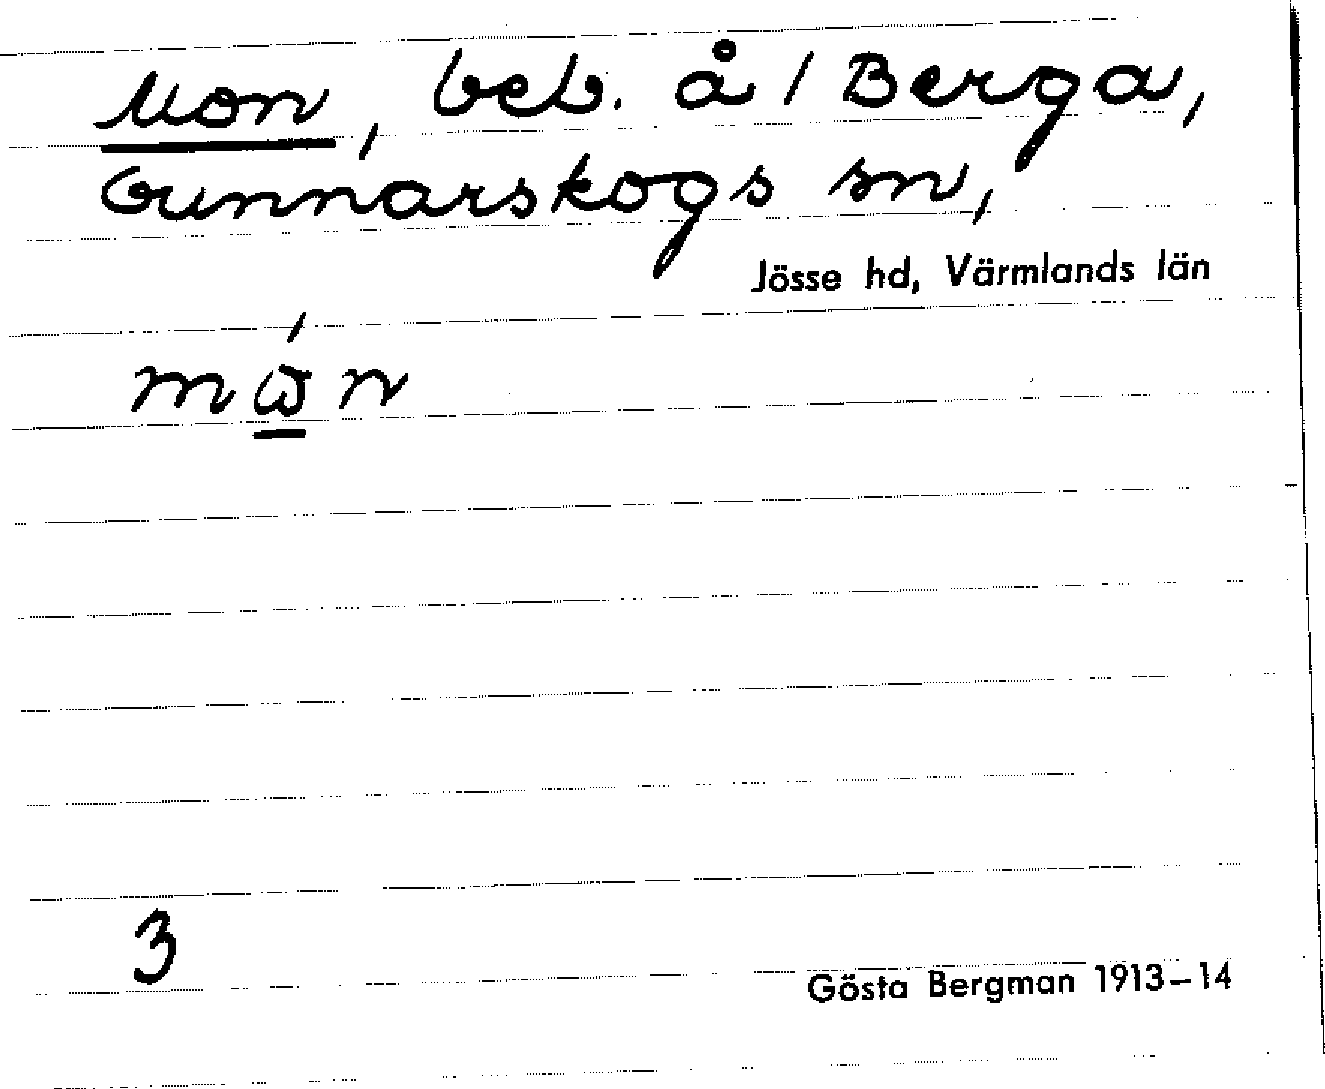 Mon, beb. å / Berga,
Gunnarskogs sn,
Jösse hd, Värmlands län
mώ̲n
3
Gösta Bergman 1913–14